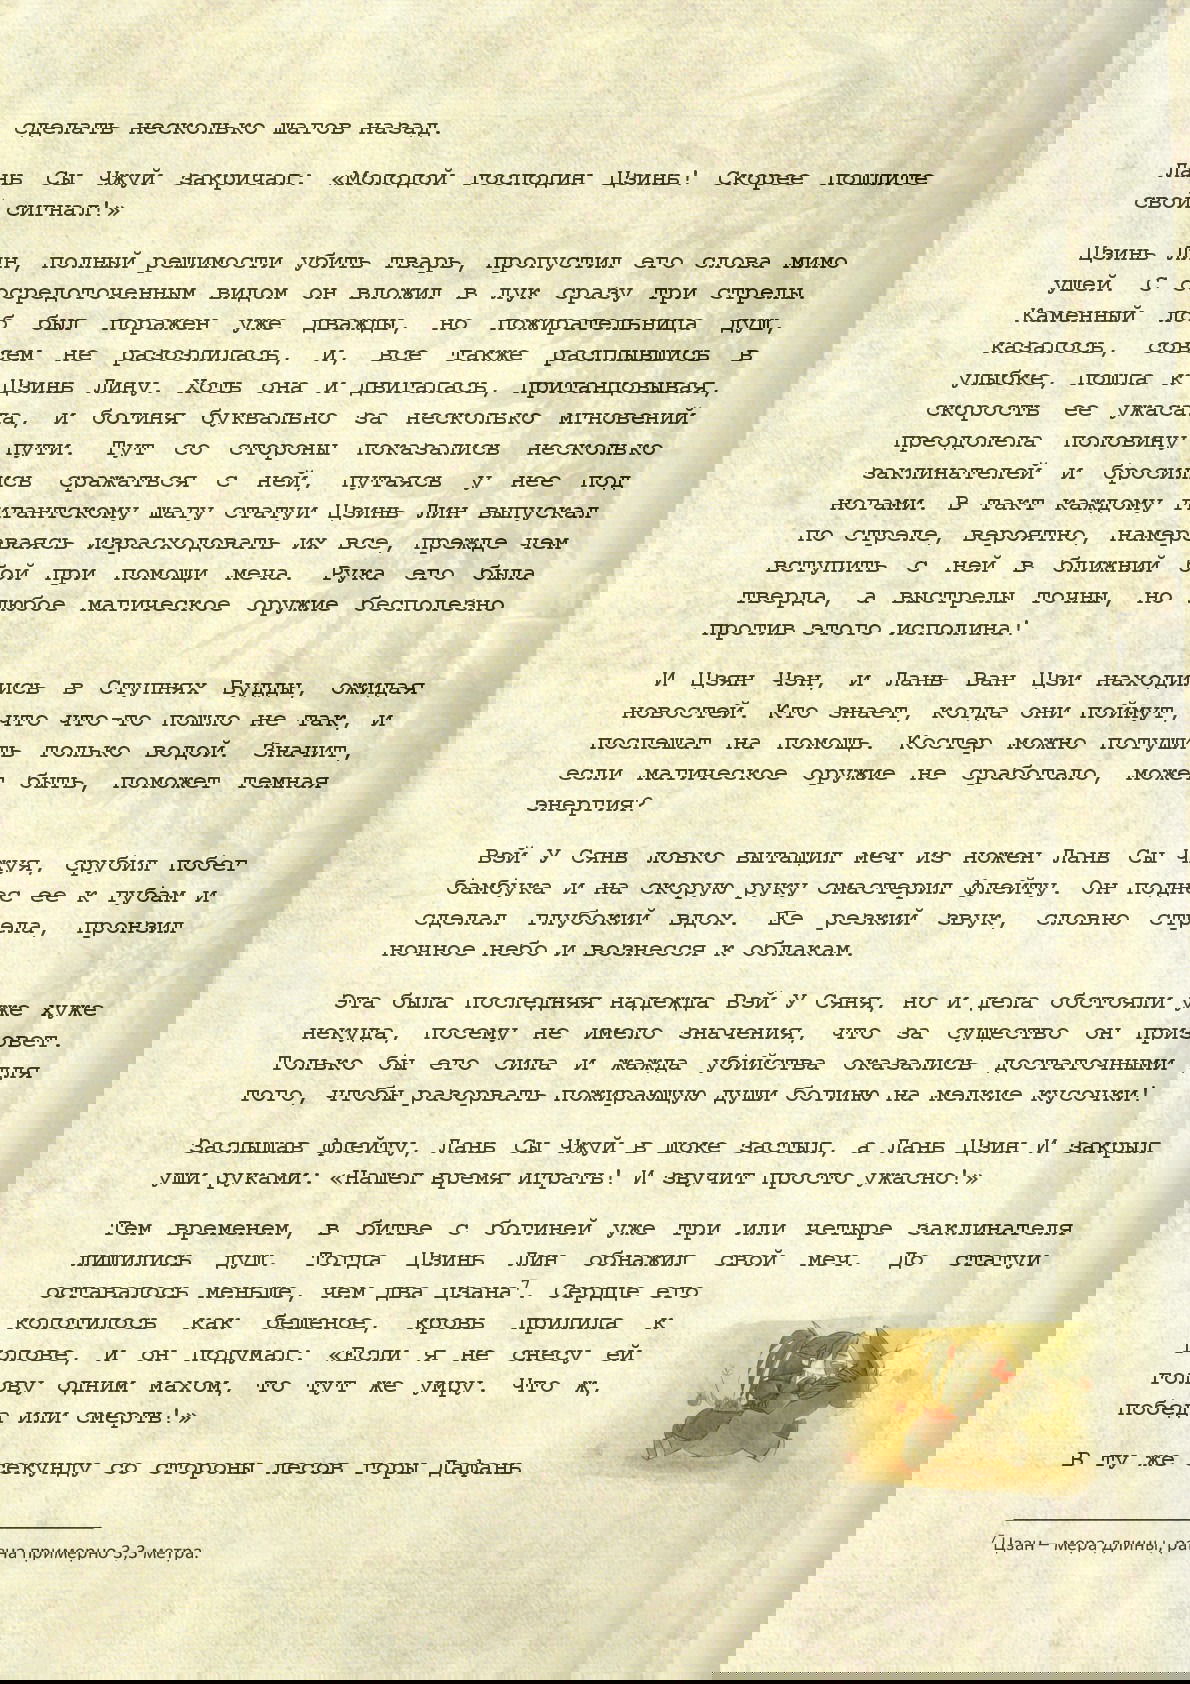 сделать несколько шагов назад.
Лань Сы Чжуй закричал: «Молодой господин Цзинь! Скорее пошлите
свой сигнал!»
Цзинь Лин, полный решимости убить тварь, пропустил его слова мимо
ушей. С сосредоточенным видом он вложил в лук сразу три стрелы.
Каменный лоб был поражен уже дважды, но пожирательница душ,
казалось, совсем не разозлилась, и, все также расплывшись в
улыбке, пошла к Цзинь Лину. Хоть она и двигалась, пританцовывая,
скорость ее ужасала, и богиня буквально за несколько мгновений
преодолела половину пути. Тут со стороны показались несколько
заклинателей и бросились сражаться с ней, путаясь у нее под
ногами. В такт каждому гигантскому шагу статуи Цзинь Лин выпускал
по стреле, вероятно, намереваясь израсходовать их все, прежде чем
вступить с ней в ближний бой при помощи меча. Рука его была
тверда, а выстрелы точны, но любое магическое оружие бесполезно
против этого исполина!
И Цзян Чэн, и Лань Ван Цзи находились в Ступнях Будды, ожидая
новостей. Кто знает, когда они поймут, что что-то пошло не так, и
поспешат на помощь. Костер можно потушить только водой. Значит,
если магическое оружие не сработало, может быть, поможет темная
энергия?
Вэй У Сянь ловко вытащил меч из ножен Лань Сы Чжуя, срубил побег
бамбука и на скорую руку смастерил флейту. Он поднес ее к губам и
сделал глубокий вдох. Ее резкий звук, словно стрела, пронзил
ночное небо и вознесся к облакам.
Эта была последняя надежда Вэй У Сяня, но и дела обстояли уже хуже
некуда, посему не имело значения, что за существо он призовет.
Только бы его сила и жажда убийства оказались достаточными для
того, чтобы разорвать пожирающую души богиню на мелкие кусочки!
Заслышав флейту, Лань Сы Чжуй в шоке застыл, а Лань Цзин И закрыл
уши руками: «Нашел время играть! И звучит просто ужасно!»
Тем временем, в битве с богиней уже три или четыре заклинателя
лишились душ. Тогда Цзинь Лин обнажил свой меч. До статуи
оставалось меньше, чем два цзана⁷. Сердце его
колотилось как бешеное, кровь прилила к
голове, и он подумал: «Если я не снесу ей
голову одним махом, то тут же умру. Что ж,
победа или смерть!»
В ту же секунду со стороны лесов горы Дафань
⁷Цзан – мера длины, равна примерно 3,3 метра.